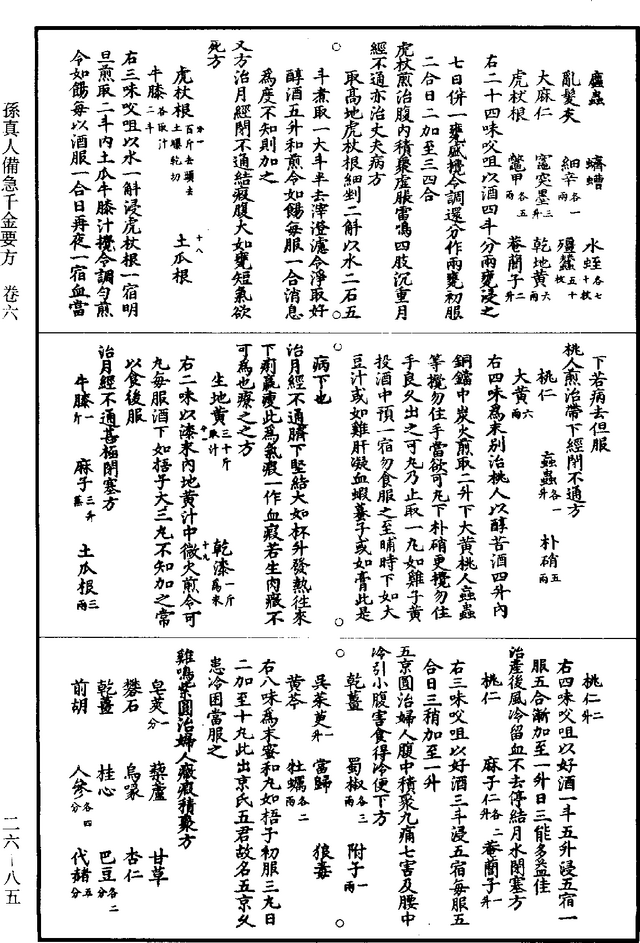 䗪蟲　蠐螬　水蛭各七十枚
亂髮灰　細辛各一兩　殭蠶五十枚
大麻仁　竈突墨三升　乾地黃六兩
虎杖根　鼈甲各五兩　菴䕡子二升
右二十四味㕮咀以酒四斗分兩甕浸之
七日併一甕盛攪令調還分作兩甕初服
二合日二加至三四合
虎杖煎治腹內積聚虛脹雷鳴四肢沉重月
經不通亦治丈夫病方
取高地虎杖根細剉二斛以水二石五
斗煮取一大斗半去滓澄濾令淨取好
醇酒五升和煎令如餳每服一合消息
為度不知則加之
又方治月經閉不通結瘕腹大如甕短氣欲
死方
虎杖根百斤去頭去土曝乾切　土瓜根
牛膝各取汁二斗
右三味㕮咀以水一斛浸虎杖根一宿明
旦煎取二斗內土瓜牛膝汁攪令調勻煎
令如餳每以酒服一合日再夜一宿血當
下若病去但服
桃人煎治帶下經閉不通方
桃仁　䖟蟲各一升　朴硝五兩
大黃六兩
右四味為末別治桃人以醇苦酒四升內
銅鐺中炭火煎取二升下大黃桃人䖟蟲
等攪勿住手當欲可丸下朴硝更攪勿住
手良久出之可丸乃止取一丸如雞子黃
投酒中預一宿勿食服之至晡時下如大
豆汁或如雞肝凝血蝦蟇子或如膏此是
病下也
治月經不通臍下堅結大如杯升發熱往來
下痢羸瘦此為氣瘕一作血瘕若生肉癥不
可為也療之之方
生地黃三十斤取汁　乾漆一斤為末
右二味以漆末內地黃汁中微火煎令可
丸每服酒下如梧子大三丸不知加之常
以食後服
治月經不通甚極閉塞方
牛膝一斤　麻子三升蒸　土瓜根三兩
桃仁二升
右四味㕮咀以好酒一斗五升浸五宿一
服五合漸加至一升日三能多益佳
治產後風冷留血不去停結月水閉塞方
桃仁　麻子仁各二升　菴䕡子一升
右三味㕮咀以好酒三斗浸五宿每服五
合日三稍加至一升
五京圓治婦人腹中積聚九痛七害及腰中
冷引小腹害食得冷便下方
乾薑　蜀椒各三兩　附子一兩
吳茱萸一升　當歸　狼毒
黃芩　牡蠣各二兩
右八味為末蜜和丸如梧子初服三丸日
二加至十丸此出京氏五君故名五京久
患冷困當服之
雞鳴紫圓治婦人癥瘕積聚方
皂莢一分　藜蘆　甘草
礬石　烏喙　杏仁
乾薑　桂心　巴豆各二分
前胡　人參各四分　代赭五分
孫真人備急千金要方　卷六
二六—八五